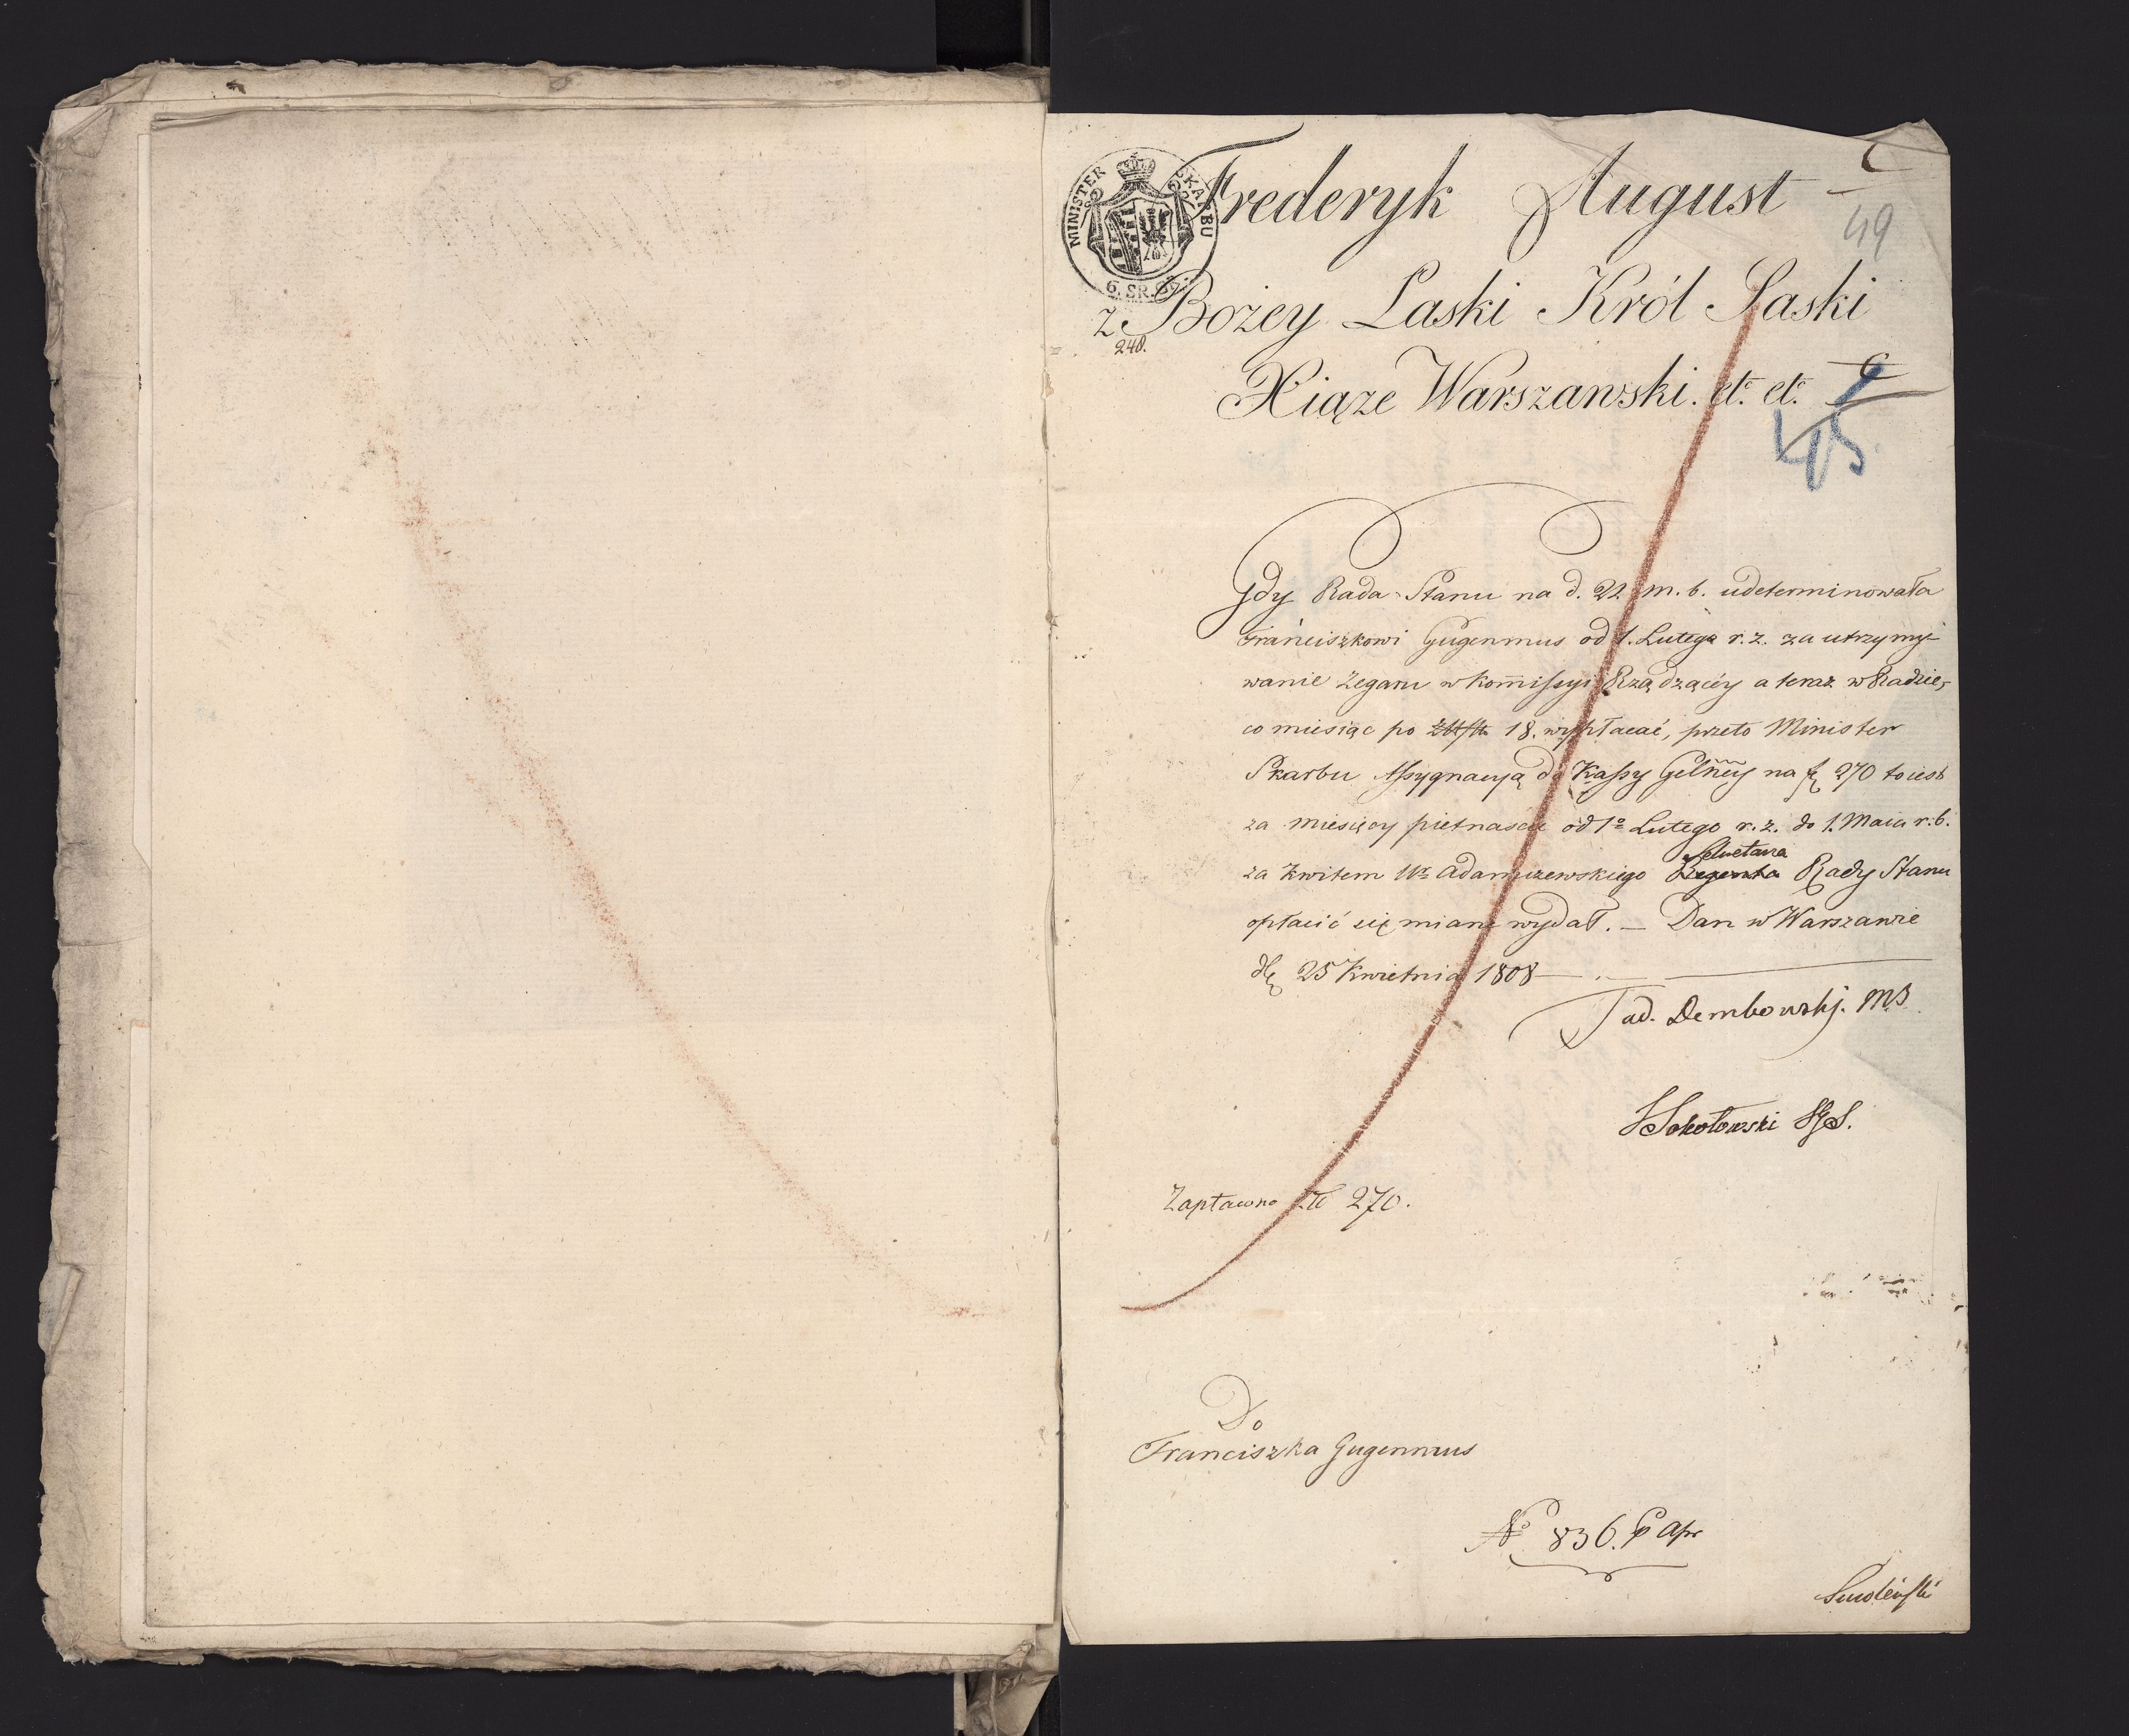 MINISTER SKARBU
6. SR. GR.
Frederyk August
49
z Bożey Laski Król Saski
248.
Xiąze Warszawski. etc. etc.
45
Gdy Rada Stanu na d. 22 m. b. udeterminowała
Franciszkowi Gugenmus od 1. Lutego r. z. za utrzymy-
wanie Zegaru w Kom̄issyi Rządzącéy a teraz w Radzie,
co miesiąc po 18. wypłacać, przeto Minister
Skarbu Assygnacyą do Kassy Gelñey na f 270 to iest
za miesięcy pietnascie od 1o Lutego r. z. do 1. Maia r. b.
Sekretarza
za Kwitem Wo Adamczewskiego Regenta Rady Stanu
opłacić się miane wydał. — Dan w Warszawie
dę 25 Kwietnia 1808 —
Tad. Dembowski. MS
Sokołowski SJS.
Zapłacono Zło 270.
Do
Franciszka Gugenmus
No 836. P Apr
Smoleński